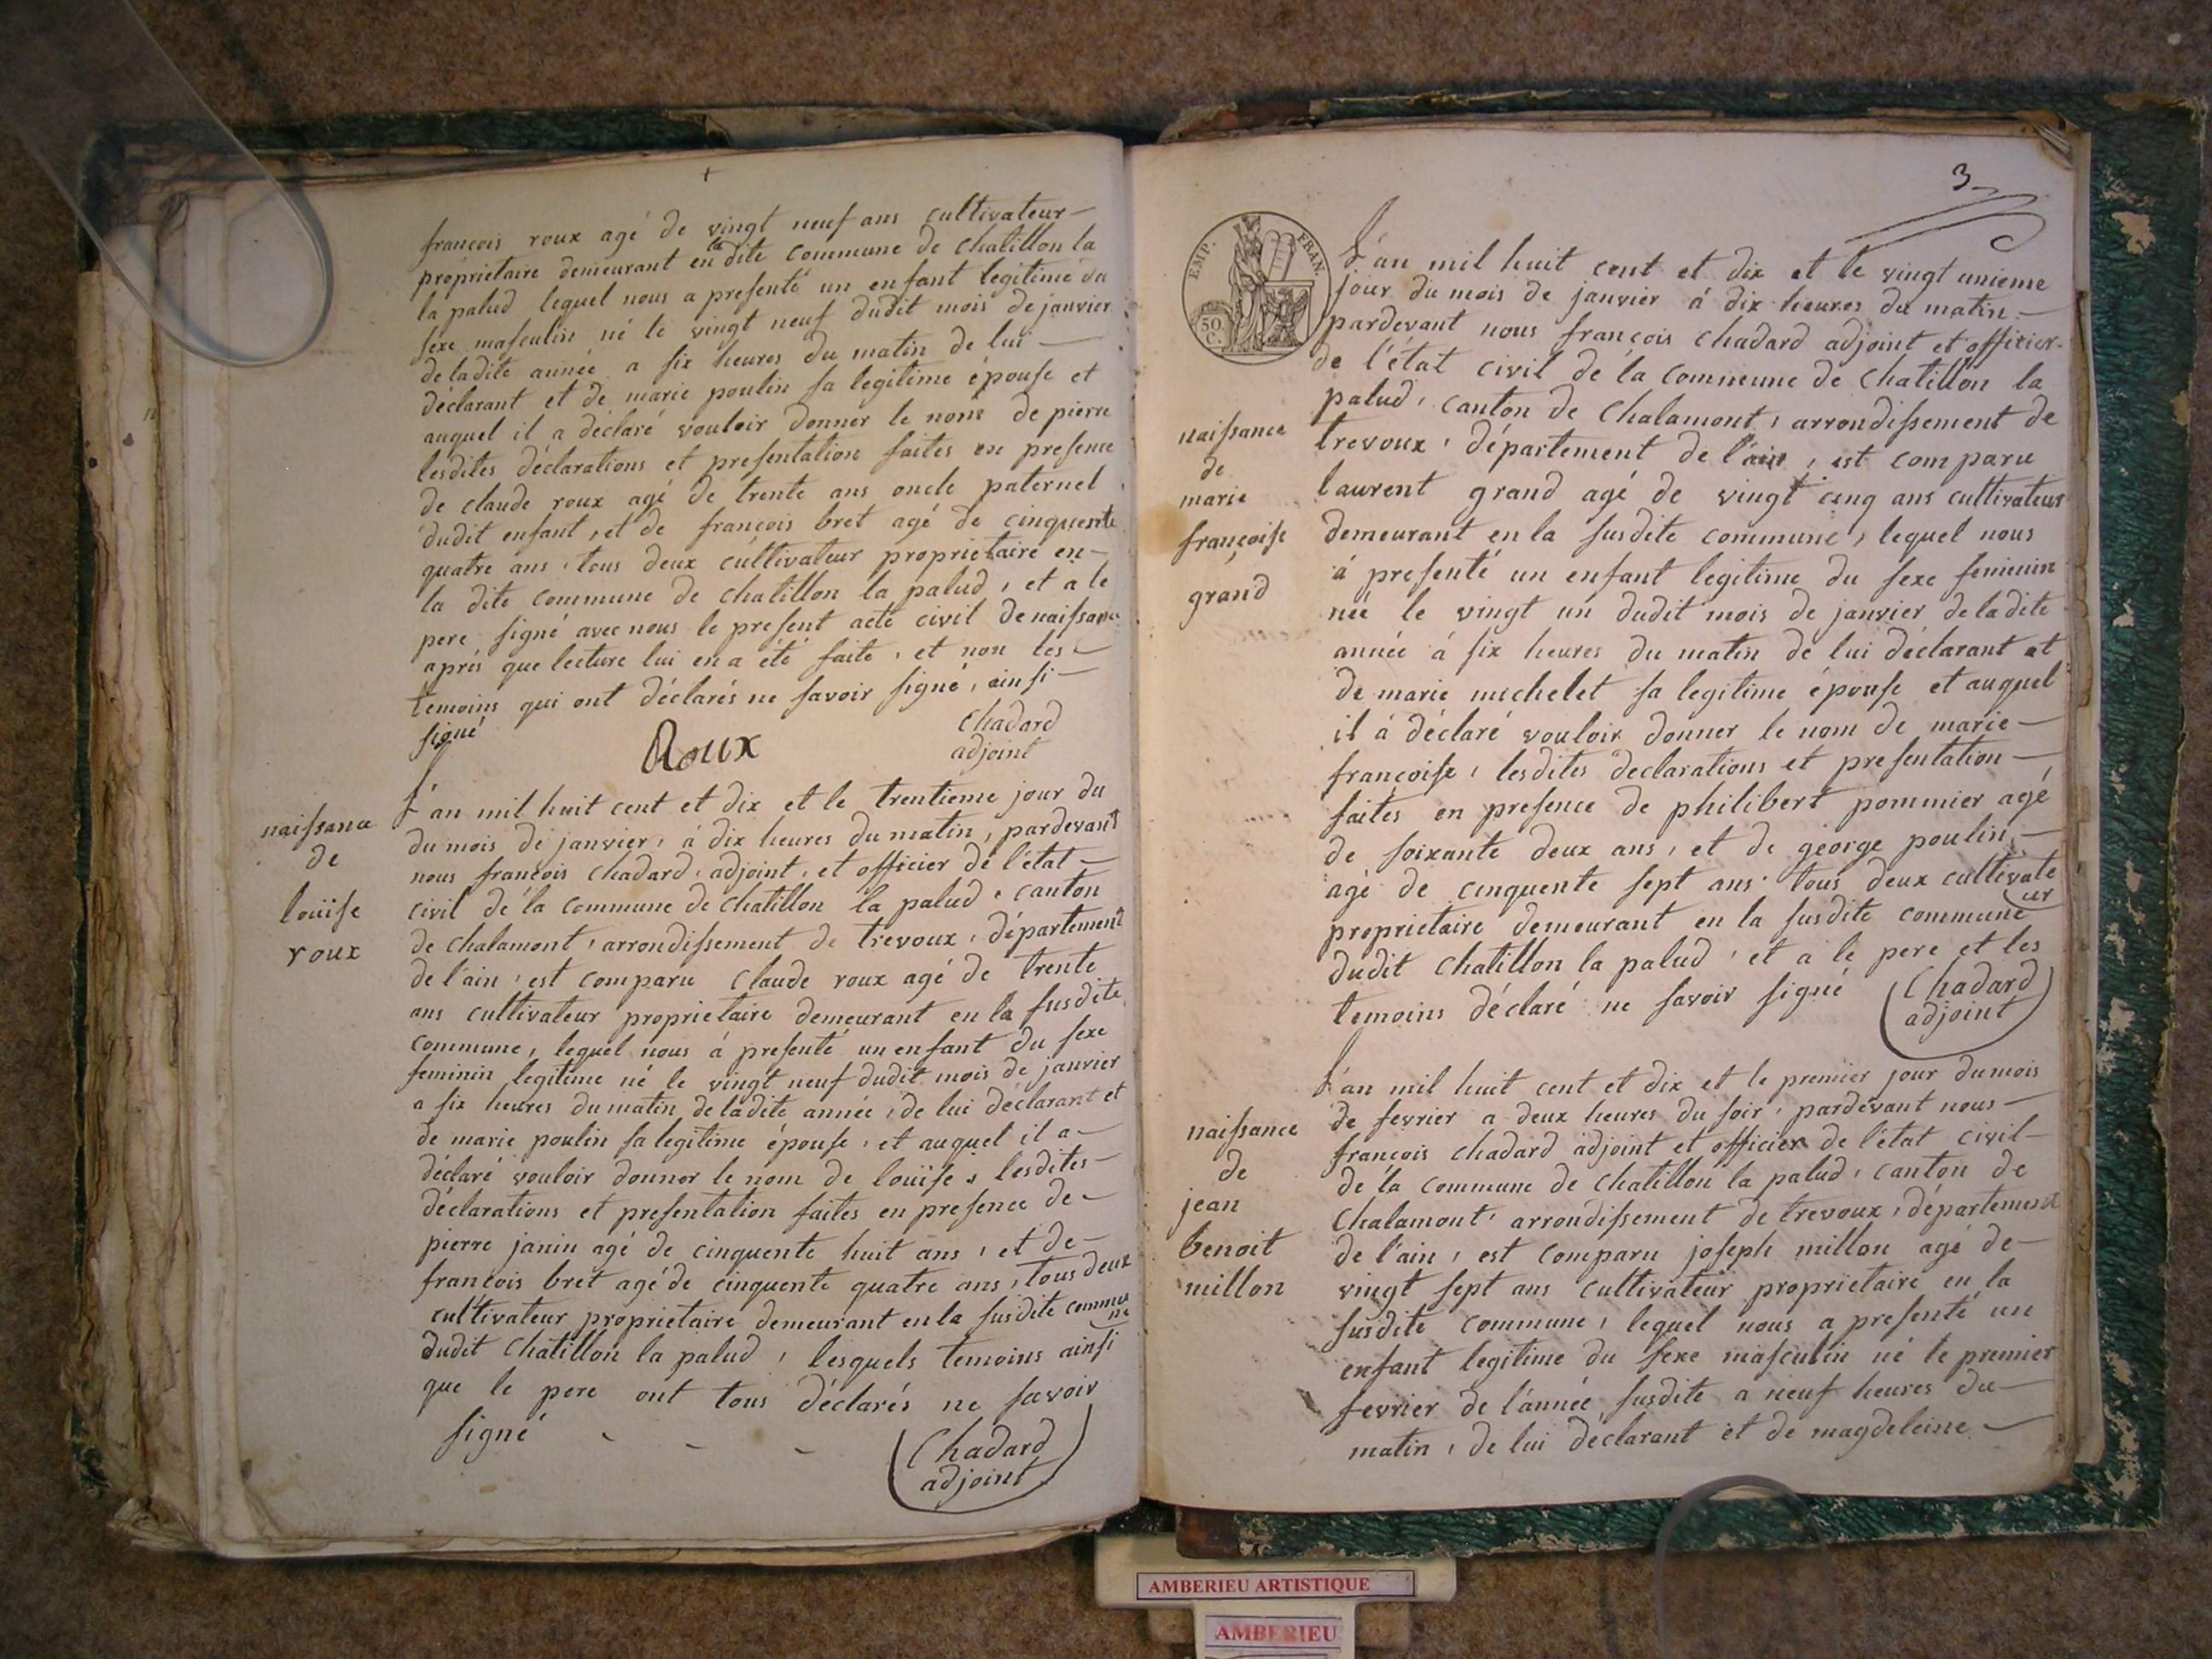 françois roux agé de vingt neuf ans cultivateur
proprietaire demeurant en la dite commune de chatillon la
la palud lequel nous a presenté un enfant legitime du
sexe masculin né le vingt neuf dudit mois de janvier
de ladite année a six heures du matin de lui
déclarant et de marie poulin sa legitime épouse et
auquel il a déclaré vouloir donner le nom de pierre
lesdites déclarations et presentation faites en presence
de claude roux agé de trente ans oncle paternel
dudit enfant, et de françois bret agé de cinquente
quatre ans, tous deux cultivateur proprietaire en
la dite commune de chatillon la palud, et a le
pere signé avec nous le présent acte civil de naissance
aprés que lecture lui en a été faite, et non les
temoins qui ont déclarés ne savoir signé, ainsi
signé
Roux
Chadard
adjoint
naissance
de
louïse
roux
L'an mil huit cent et dix et le trentieme jour du
du mois de janvier, à dix heures du matin, pardevant
nous francois chadard, adjoint, et officier de l'état
civil de la commune de chatillon la palud, canton
de chalamont, arrondissement de trevoux, département
de l'ain, est comparu claude roux agé de trente
ans cultivateur proprietaire demeurant en la susdite
commune, lequel nous à presenté un enfant du sexe
feminin legitime né le vingt neuf dudit mois de janvier
a six heures du matin de ladite année, de lui déclarant et
de marie poulin sa legitime épouse, et auquel il a
déclaré vouloir donner le nom de louïse, lesdites
déclarations et presentation faites en presence de
pierre janin agé de cinquente huit ans, et de
francois bret agé de cinquente quatre ans, tous deux
cultivateur proprietaire demeurant en la susdite commune
dudit chatillon la palud, lesquels temoins ainsi
que le pere ont tous déclarés ne savoir
signé
Chadard
adjoint
3
EMP. FRAN.
50.
C.
L'an mil huit cent et dix et le vingt unieme
jour du mois de janvier à dix heures du matin
pardevant nous françois chadard adjoint et officier
de l'état civil de la commune de chatillon la
palud, canton de chalamont, arrondissement de
trevoux, département de l'ain, est comparu
laurent grand agé de vingt cinq ans cultivateur
demeurant en la susdite commune, lequel nous
à presenté un enfant legitime du sexe feminin
née le vingt un dudit mois de janvier de ladite
année à six heures du matin de lui déclarant et
de marie michelet sa legitime épouse et auquel
il à déclaré vouloir donner le nom de marie
françoise, lesdites declarations et presentation
faites en presence de philibert pommier agé
de soixante deux ans, et de george poulin
agé de cinquente sept ans, tous deux cultivateur
proprietaire demeurant en la susdite commune
dudit chatillon la palud, et a le pere et les
temoins déclaré ne savoir signé
Chadard
adjoint
naissance
de
marie
françoise
grand
L'an mil huit cent et dix et le premier jour du mois
de fevrier a deux heures du soir, pardevant nous
francois chadard adjoint et officier de l'état civil
de la commune de chatillon la palud, canton de
chalamont, arrondissement de trevoux, département
de l'ain, est comparu joseph millon agé de
vingt sept ans cultivateur proprietaire en la
susdite commune, lequel nous a presenté un
enfant legitime du sexe masculin né le premier
fevrier de l'année susdite a neuf heures du
matin, de lui déclarant et de magdeleine
naissance
de
jean
benoit
millon
AMBERIEU ARTISTIQUE
AMBERIEU